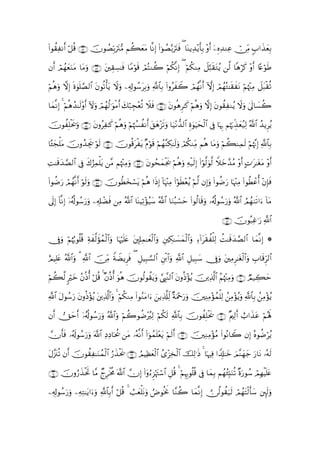 بِعَذَابٍ مِّنْ عِندِهِۦٓ أَوْ بِأَيْدِينَا ۖ فَتَرَبَّصُوٓا۟ إِنَّا مَعَكُم مُّتَرَبِّصُونَ ۝ قُلْ أَنفِقُوا۟
طَوْعًا أَوْ كَرْهًا لَّن يُتَقَبَّلَ مِنكُمْ ۖ إِنَّكُمْ كُنتُمْ قَوْمًا فَٰسِقِينَ ۝ وَمَا مَنَعَهُمْ أَن
تُقْبَلَ مِنْهُمْ نَفَقَٰتُهُمْ إِلَّآ أَنَّهُمْ كَفَرُوا۟ بِٱللَّهِ وَبِرَسُولِهِۦ وَلَا يَأْتُونَ ٱلصَّلَوٰةَ إِلَّا وَهُمْ
كُسَالَىٰ وَلَا يُنفِقُونَ إِلَّا وَهُمْ كَٰرِهُونَ ۝ فَلَا تُعْجِبْكَ أَمْوَٰلُهُمْ وَلَآ أَوْلَٰدُهُمْ ۚ إِنَّمَا
يُرِيدُ ٱللَّهُ لِيُعَذِّبَهُم بِهَا فِى ٱلْحَيَوٰةِ ٱلدُّنْيَا وَتَزْهَقَ أَنفُسُهُمْ وَهُمْ كَٰفِرُونَ ۝ وَيَحْلِفُونَ
بِٱللَّهِ إِنَّهُمْ لَمِنكُمْ وَمَا هُم مِّنكُمْ وَلَٰكِنَّهُمْ قَوْمٌ يَفْرَقُونَ ۝ لَوْ يَجِدُونَ مَلْجَـًٔا
أَوْ مَغَٰرَٰتٍ أَوْ مُدَّخَلًا لَّوَلَّوْا۟ إِلَيْهِ وَهُمْ يَجْمَحُونَ ۝ وَمِنْهُم مَّن يَلْمِزُكَ فِى ٱلصَّدَقَٰتِ
فَإِنْ أُعْطُوا۟ مِنْهَا رَضُوا۟ وَإِن لَّمْ يُعْطَوْا۟ مِنْهَآ إِذَا هُمْ يَسْخَطُونَ ۝ وَلَوْ أَنَّهُمْ رَضُوا۟
مَآ ءَاتَىٰهُمُ ٱللَّهُ وَرَسُولُهُۥ وَقَالُوا۟ حَسْبُنَا ٱللَّهُ سَيُؤْتِينَا ٱللَّهُ مِن فَضْلِهِۦ وَرَسُولُهُۥٓ إِنَّآ إِلَى
ٱللَّهِ رَٰغِبُونَ ۝
۞ إِنَّمَا ٱلصَّدَقَٰتُ لِلْفُقَرَآءِ وَٱلْمَسَٰكِينِ وَٱلْعَٰمِلِينَ عَلَيْهَا وَٱلْمُؤَلَّفَةِ قُلُوبُهُمْ وَفِى
ٱلرِّقَابِ وَٱلْغَٰرِمِينَ وَفِى سَبِيلِ ٱللَّهِ وَٱبْنِ ٱلسَّبِيلِ ۖ فَرِيضَةً مِّنَ ٱللَّهِ ۗ وَٱللَّهُ عَلِيمٌ
حَكِيمٌ ۝ وَمِنْهُمُ ٱلَّذِينَ يُؤْذُونَ ٱلنَّبِىَّ وَيَقُولُونَ هُوَ أُذُنٌ ۚ قُلْ أُذُنُ خَيْرٍ لَّكُمْ
يُؤْمِنُ بِٱللَّهِ وَيُؤْمِنُ لِلْمُؤْمِنِينَ وَرَحْمَةٌ لِّلَّذِينَ ءَامَنُوا۟ مِنكُمْ ۚ وَٱلَّذِينَ يُؤْذُونَ رَسُولَ ٱللَّهِ
لَهُمْ عَذَابٌ أَلِيمٌ ۝ يَحْلِفُونَ بِٱللَّهِ لَكُمْ لِيُرْضُوكُمْ وَٱللَّهُ وَرَسُولُهُۥٓ أَحَقُّ أَن
يُرْضُوهُ إِن كَانُوا۟ مُؤْمِنِينَ ۝ أَلَمْ يَعْلَمُوٓا۟ أَنَّهُۥ مَن يُحَادِدِ ٱللَّهَ وَرَسُولَهُۥ فَأَنَّ
لَهُۥ نَارَ جَهَنَّمَ خَٰلِدًا فِيهَا ۚ ذَٰلِكَ ٱلْخِزْىُ ٱلْعَظِيمُ ۝ يَحْذَرُ ٱلْمُنَٰفِقُونَ أَن تُنَزَّلَ
عَلَيْهِمْ سُورَةٌ تُنَبِّئُهُم بِمَا فِى قُلُوبِهِمْ ۚ قُلِ ٱسْتَهْزِءُوٓا۟ إِنَّ ٱللَّهَ مُخْرِجٌ مَّا تَحْذَرُونَ ۝
وَلَئِن سَأَلْتَهُمْ لَيَقُولُنَّ إِنَّمَا كُنَّا نَخُوضُ وَنَلْعَبُ ۚ قُلْ أَبِٱللَّهِ وَءَايَٰتِهِۦ وَرَسُولِهِۦ